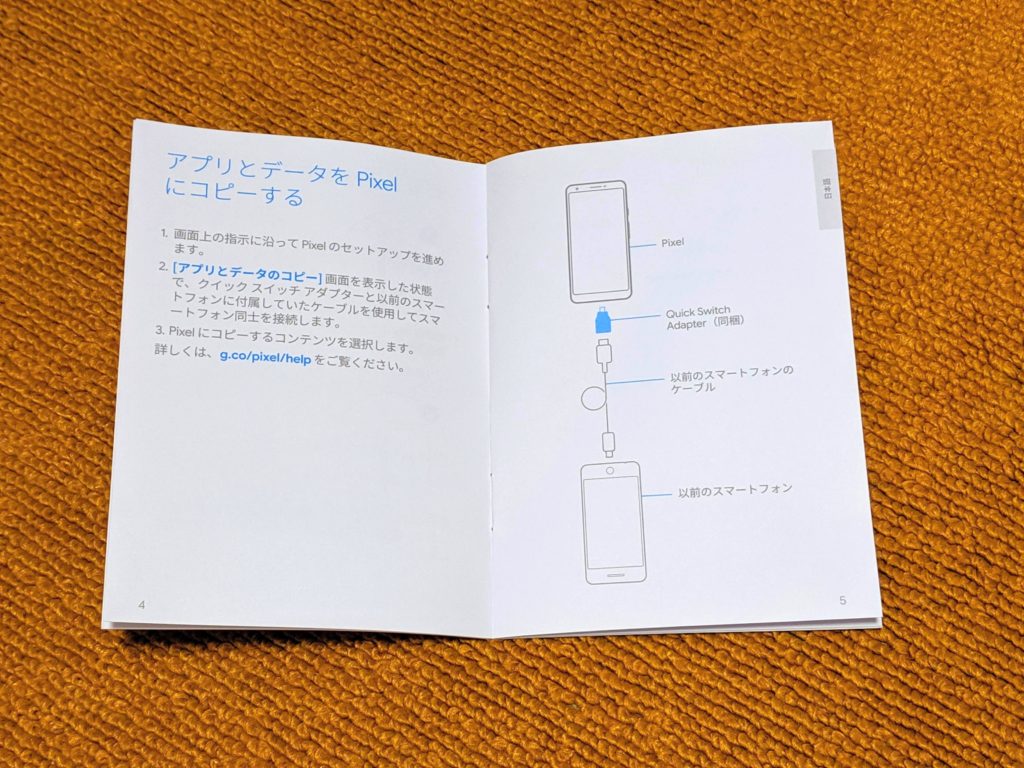 アプリとデータを Pixel
にコピーする
1. 画面上の指示に沿って Pixel のセットアップを進め
ます。
2. [アプリとデータのコピー] 画面を表示した状態
で、クイック スイッチ アダプターと以前のスマー
トフォンに付属していたケーブルを使用してスマ
ートフォン同士を接続します。
3. Pixel にコピーするコンテンツを選択します。
詳しくは、g.co/pixel/help をご覧ください。
4
日本語
Pixel
Quick Switch
Adapter（同梱）
以前のスマートフォンの
ケーブル
以前のスマートフォン
5